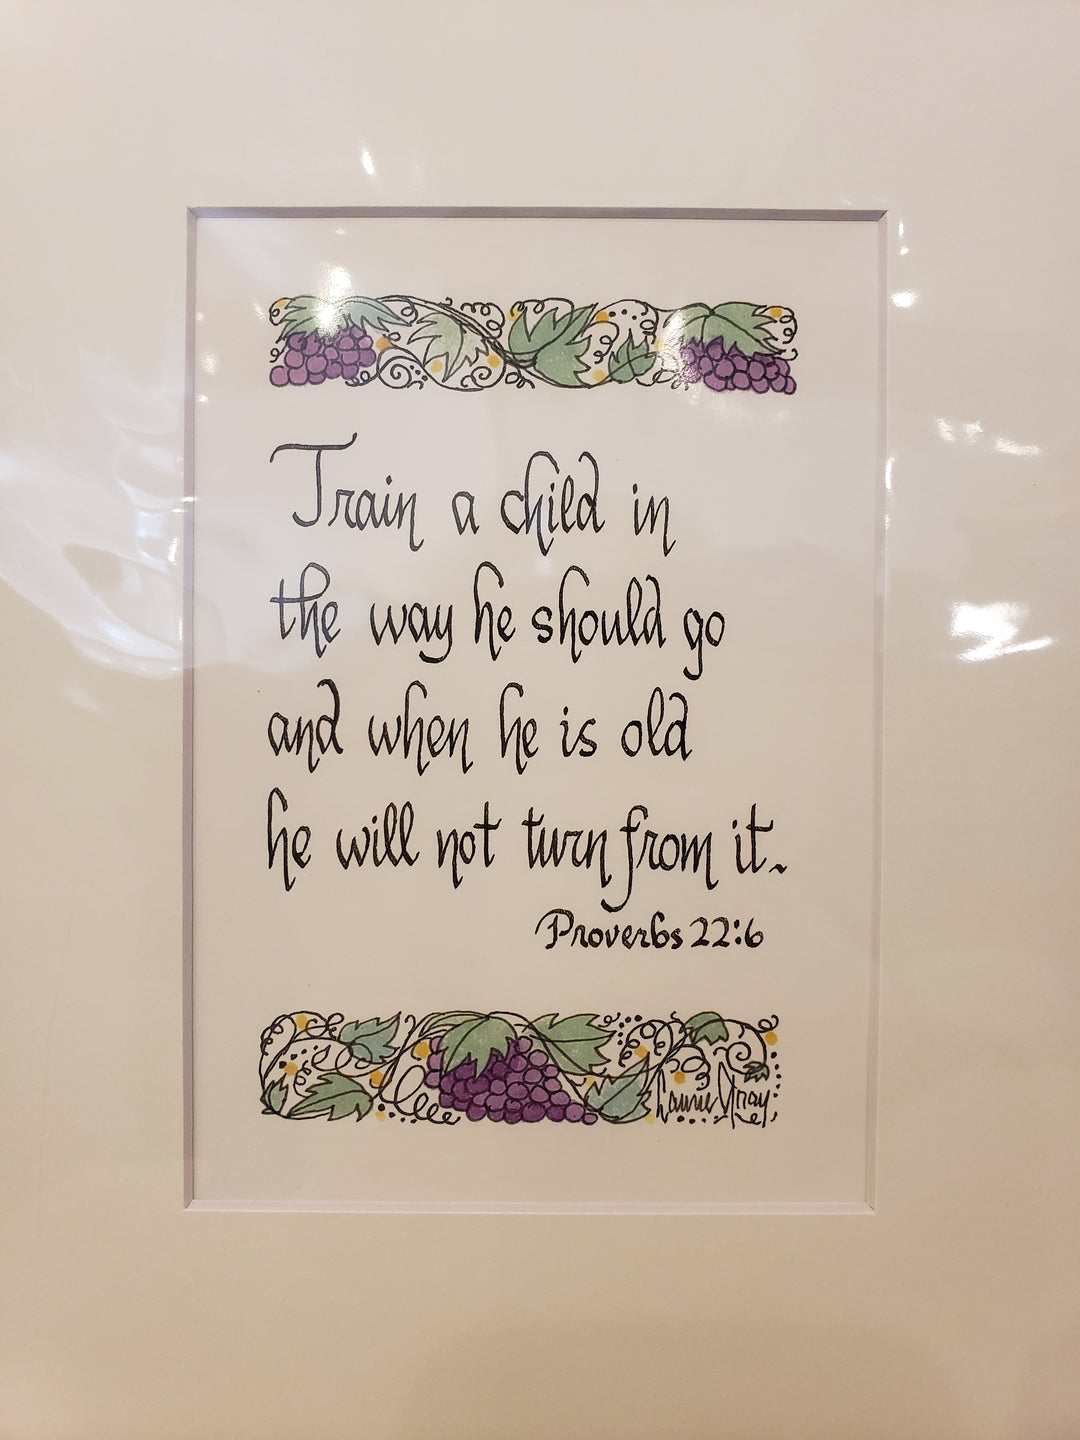 Train a child in
the way he should go
and when he is old
he will not turn from it~
Proverbs 22:6
Laurie Gray